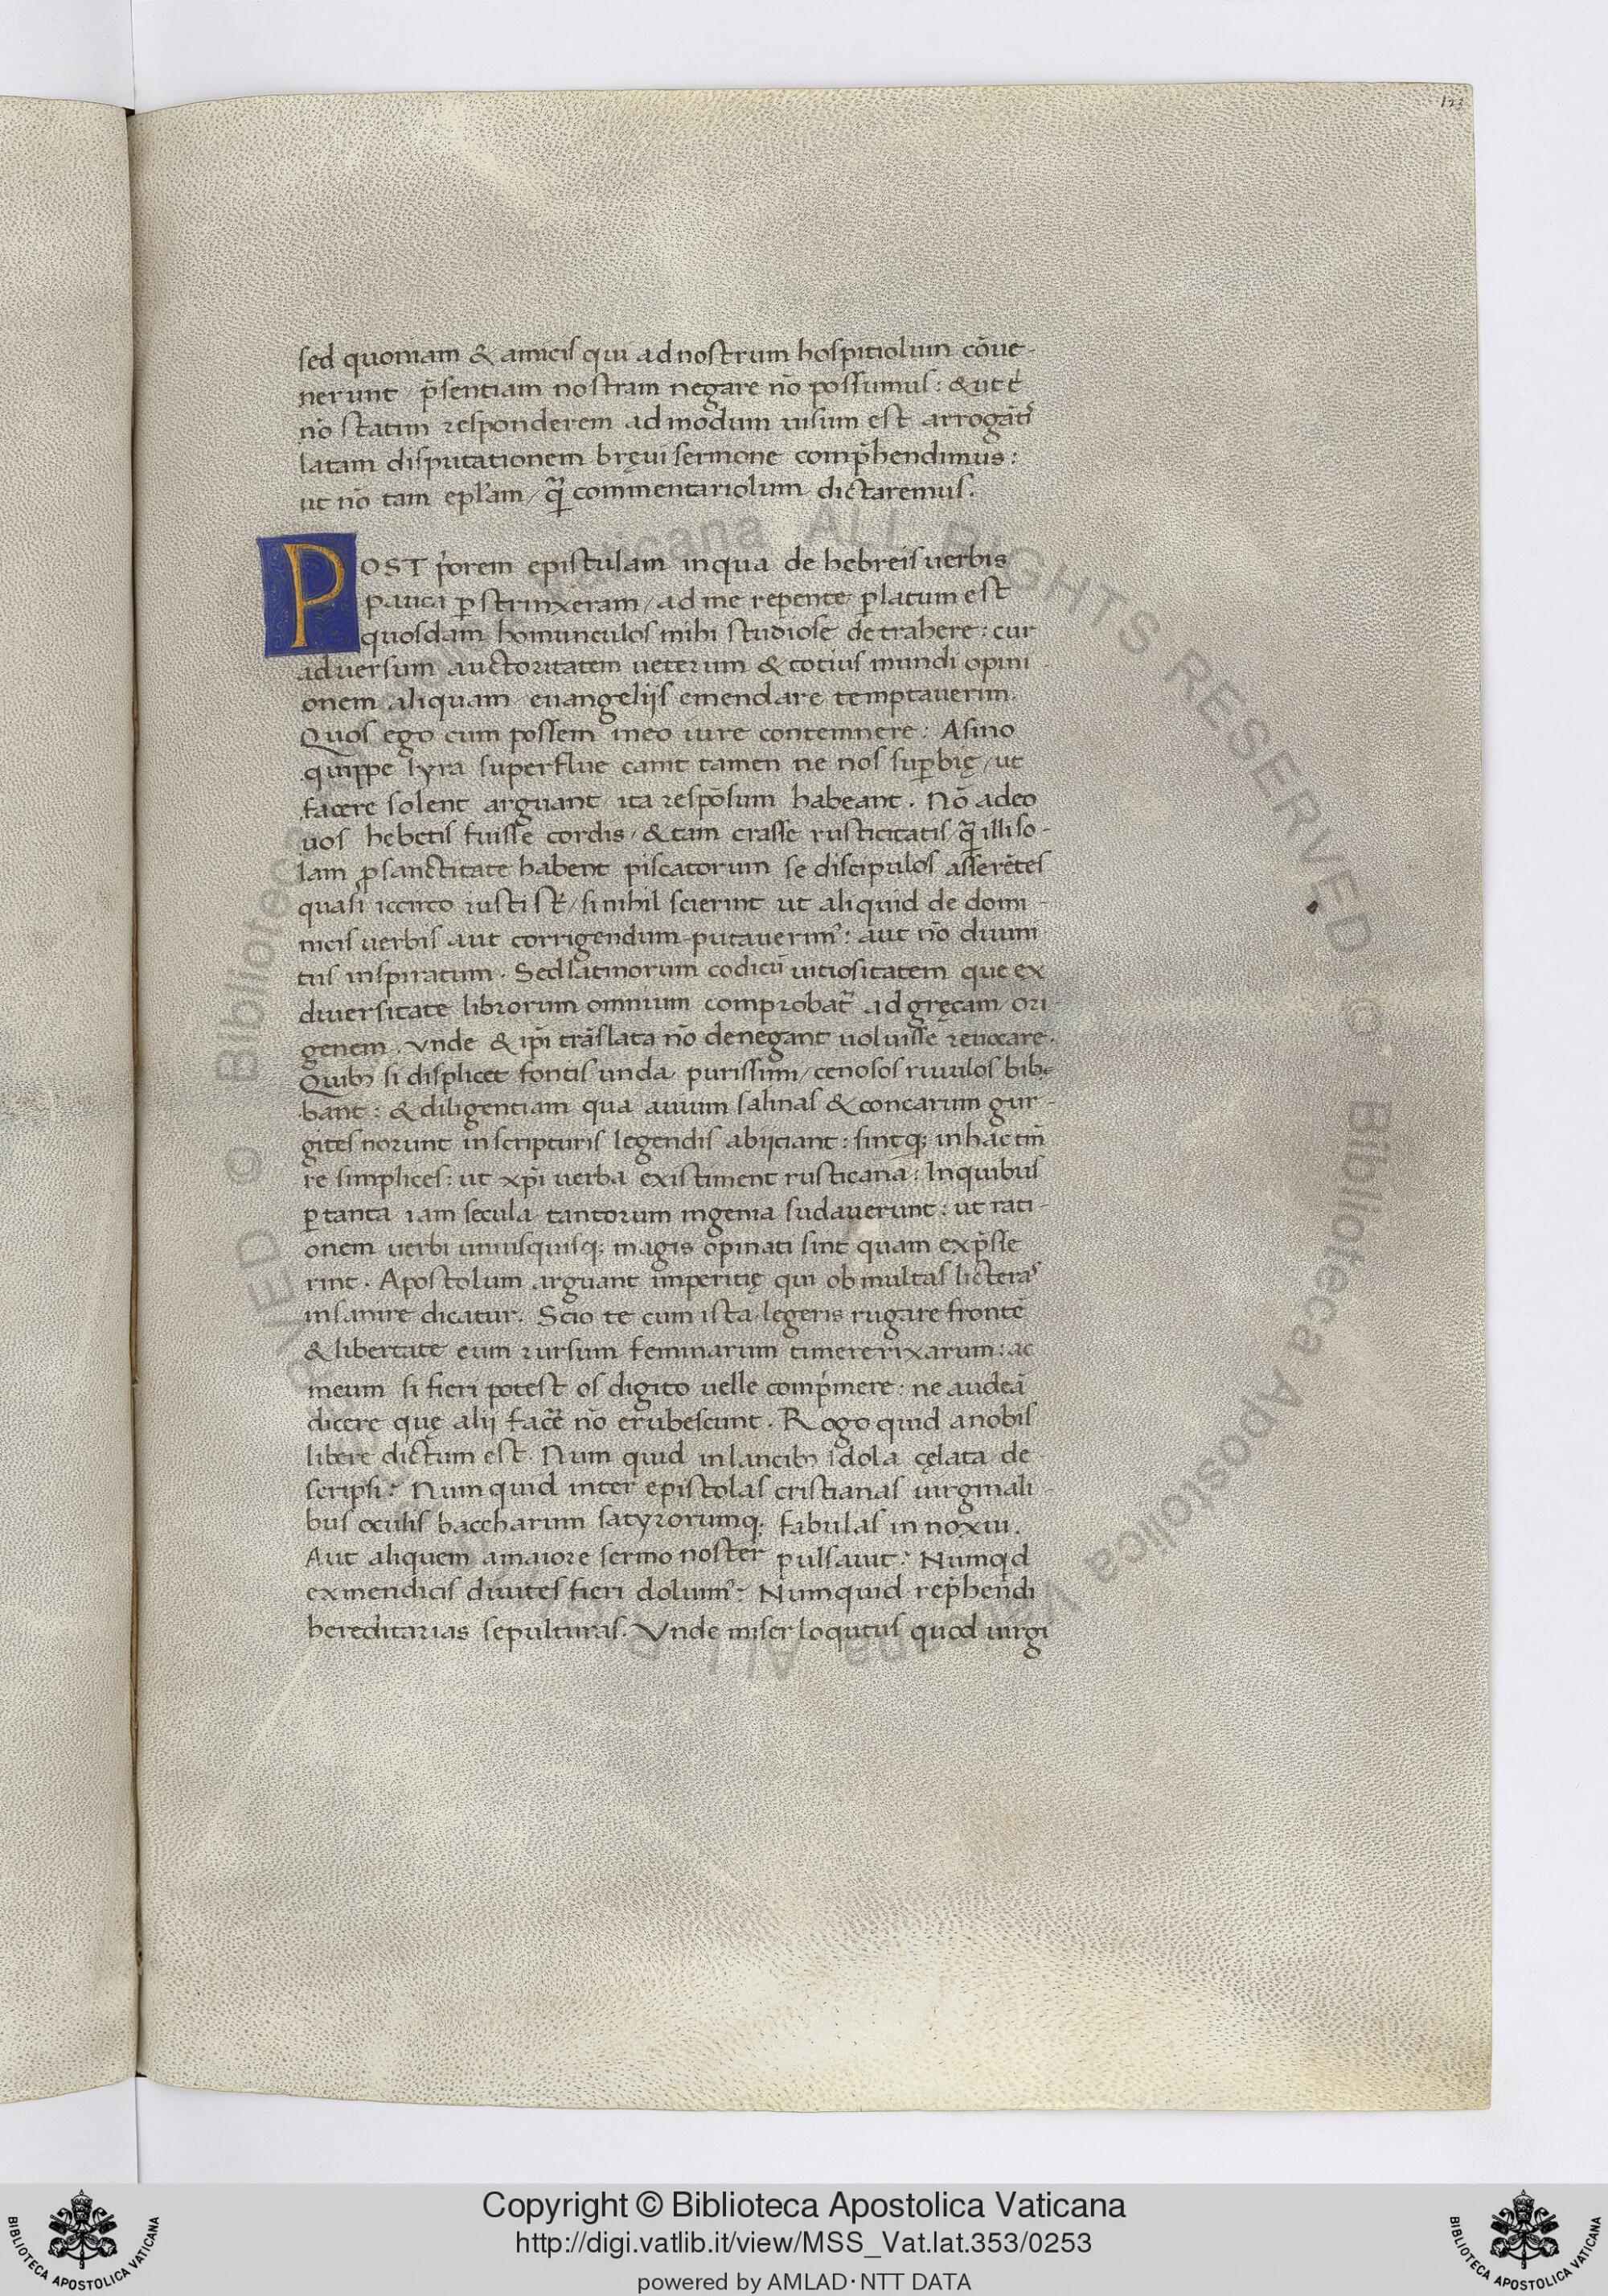 123
sed quoniam & amicis qui ad nostrum hospitiolum cōue-
nerunt / p̄sentiam nostram negare nō possumus: & ut t̄
nō statim responderem admodum uisum est arrogāti
latam disputationem bręui sermone comp̄hendimus:
ut nō tam epl'am / q̄ commentariolum dictaremus.
POST p̄orem epistulam in qua de hebreis uerbis
pauca ꝑstrinxeram / ad me repente ꝑlatum est
quosdam homunculos mihi studiose detrahere: cur
aduersum auctoritatem ueterum & totius mundi opini-
onem aliquam euangelijs emendare temptauerim.
Quos ego cum possem meo iure contemnere: Asino
quippe lyra superflue canit tamen ne nos suꝑbię / ut
facere solent arguant / ita respōsum habeant. Nō adeo
uos hebetis fuisse cordis / & tam crasse rusticitatis / q̄ illi so-
lam ꝓ sanctitate habent piscatorum se discipulos asserētes
quasi iccirco iusti st̄ / si nihil scierint ut aliquid de domi-
nicis uerbis aut corrigendum putauerim: aut nō diuini
tus inspiratum. Sed latinorum codicū uitiositatem que ex
diuersitate librorum omnium comprobat̄ ad gręcam ori-
genem. Vnde & ip̄i trāslata nō denegant uoluisse reuocare.
Quibꝫ si displicet fontis unda purissimi / cenosos riuulos bibe
bant: & diligentiam qua auium saliuas & concarum gur-
gites norunt in scripturis legendis abijciant: sintqꝫ in hac tm̄
re simplices: ut xp̄i uerba existiment rusticana: In quibus
ꝑ tanta iam secula tantorum ingenia sudauerunt: ut rati-
onem uerbi uniusquisqꝫ magis opinati sint quam exp̄sse
rint. Apostolum arguant imperitię qui ob multas licteras
insanire dicatur. Scio te cum ista legeris rugare frontē
& libertate eum rursum feminarum timere rixarum: ac
meum si fieri potest os digito uelle comp̄mere: ne audeā
dicere quę alij facē nō erubescunt. Rogo quid a nobis
libere dictum est. Num quid in lancibꝫ idola cęlata de
scripsi: Num quid inter epistolas cristianas uirginali-
bus oculis baccharum satyrorumqꝫ fabulas in noxui.
Aut aliquem amaiore sermo noster pulsauit: Numqd
ex mendicis diuites fieri doluim9: Numquid rep̄hendi
hereditarias sepulturas. Vnde miser loqutus quod uirgi
© Biblioteca Apostolica Vaticana ALL RIGHTS RESERVED
Copyright © Biblioteca Apostolica Vaticana
http://digi.vatlib.it/view/MSS_Vat.lat.353/0253
powered by AMLAD·NTT DATA
BIBLIOTECA APOSTOLICA VATICANA
BIBLIOTECA APOSTOLICA VATICANA